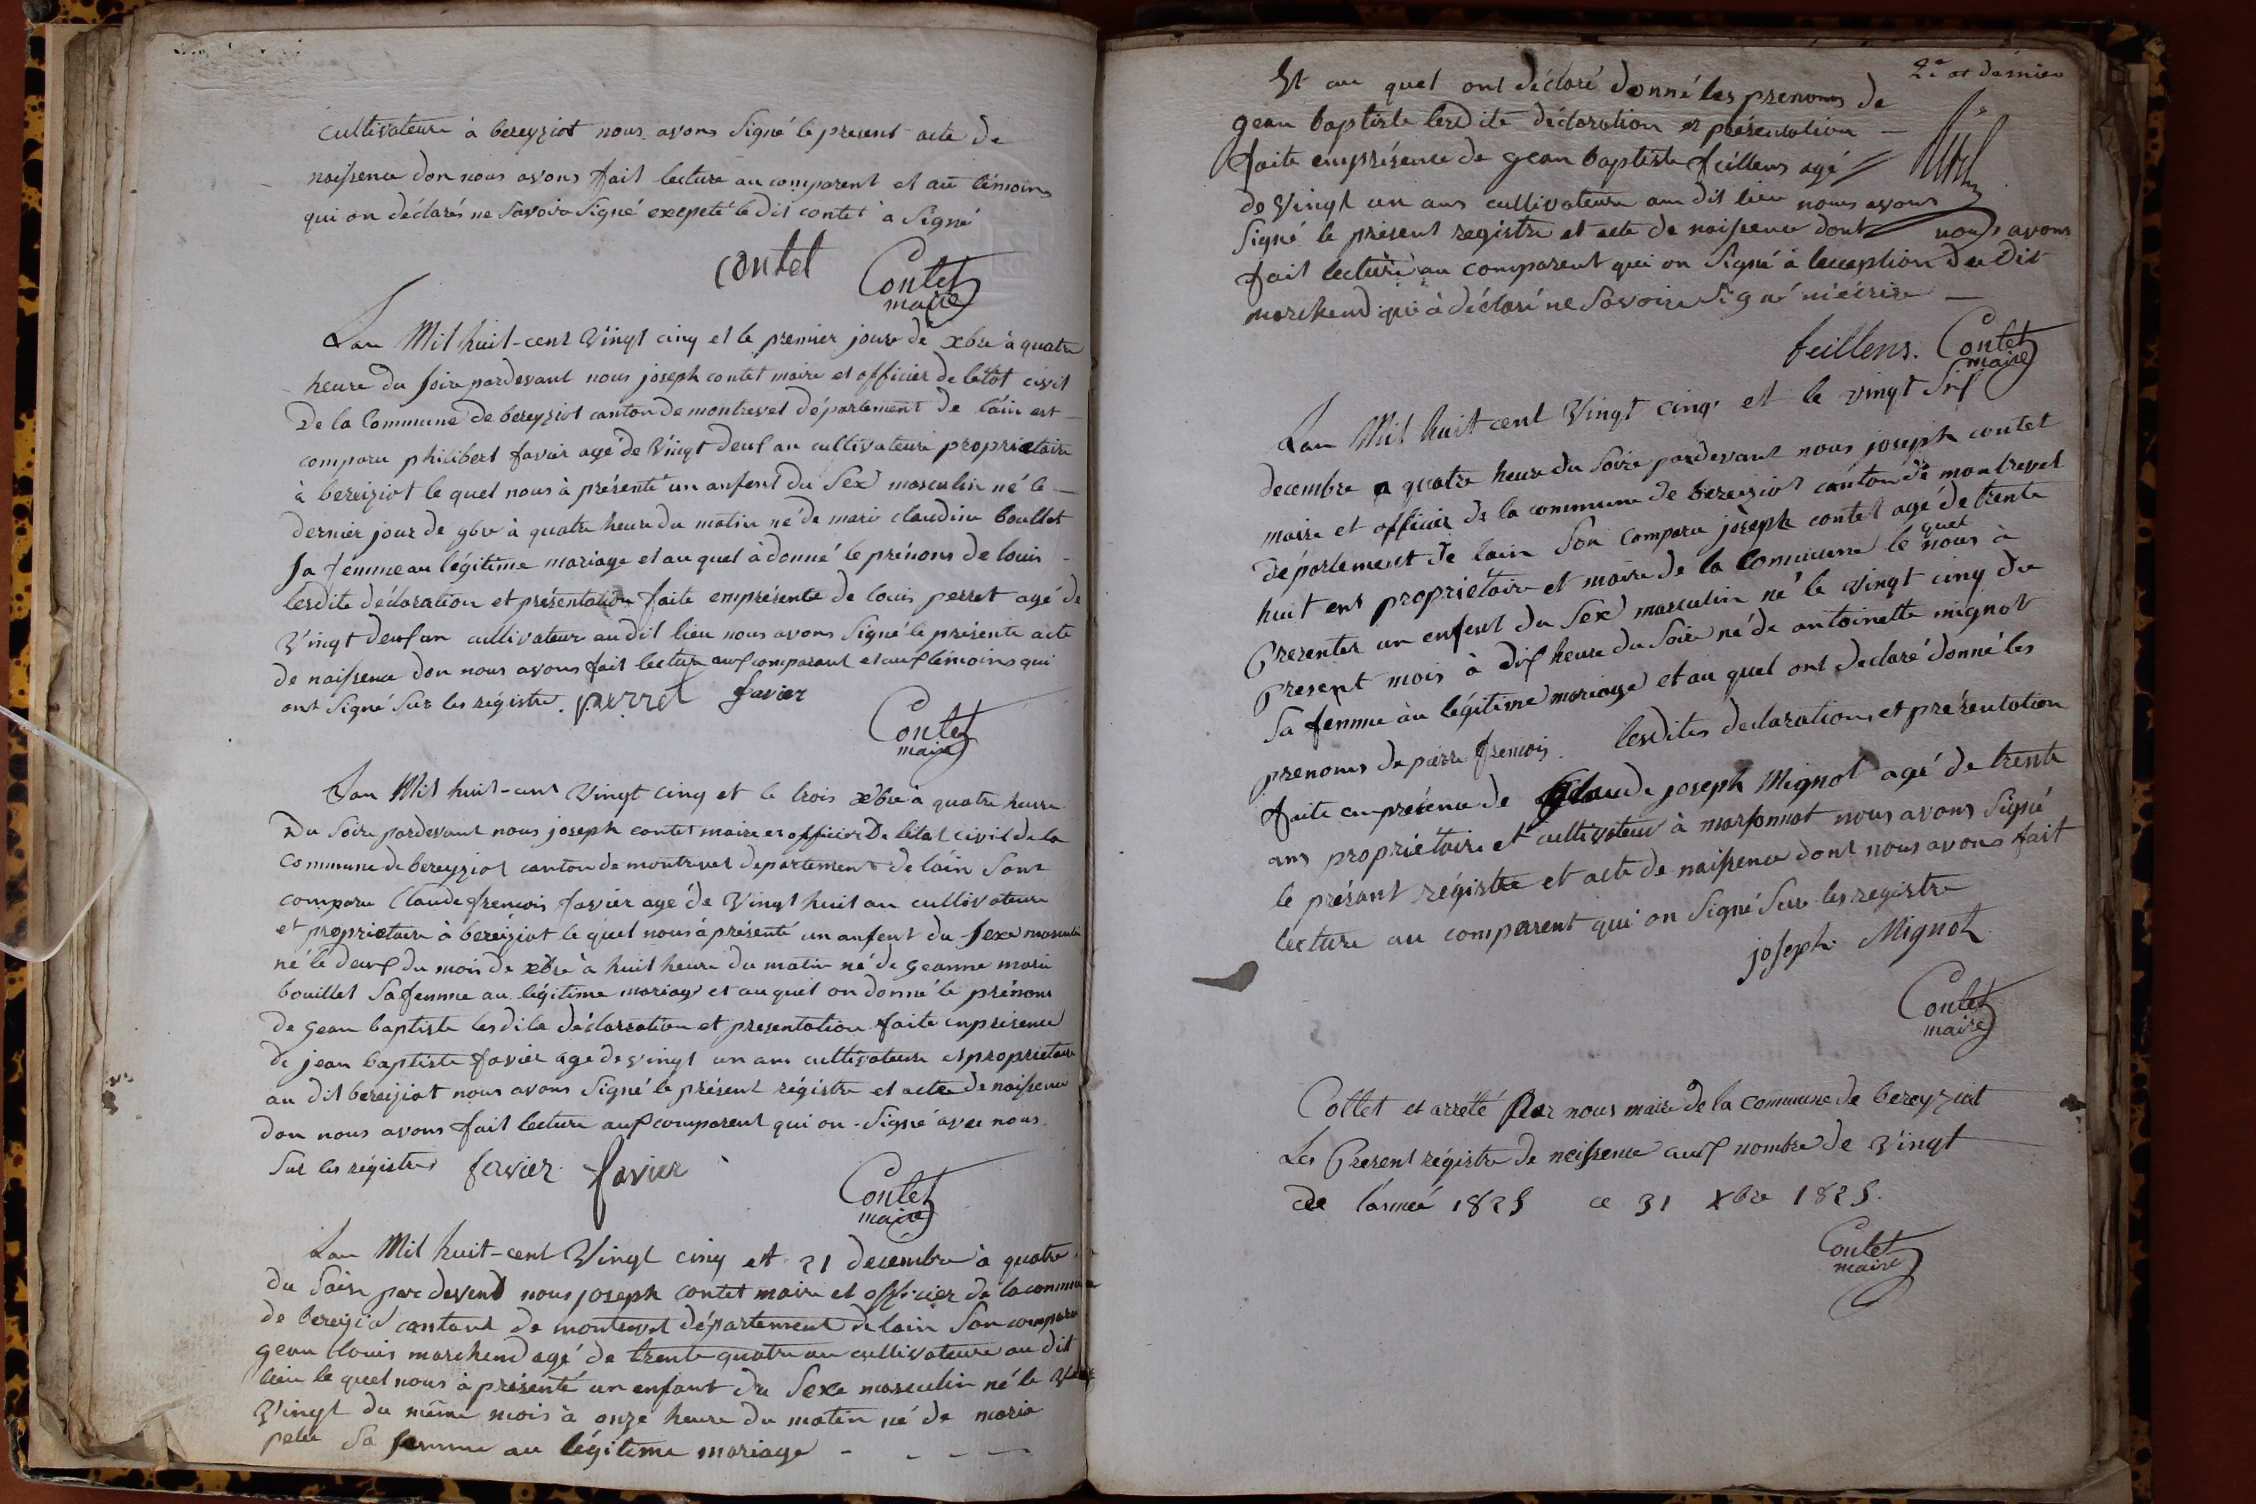 cultivateure à bereyziot nous avons Signé le present acte de
naissence don nous avons fait lecture au comparent et au témoins
qui on déclarés ne Savoire Signé exepeté le dit contet a Signé
contet Contet
maire
Lan Mil huit-cent Vingt cinq et le premier jour de xbre à quatre
heure du soire pardevant nous joseph contet maire et officier de létot civil
De la Commune de bereyziot canton de montrevel département de láin est
comparu philibert favier agé de Vingt deux an cultivateure proprietaire
à bereiziot le quel nous à présenté un anfent du Sex masculin né le
dernier jour de 9bre à quatre heure du matin né de marie claudine boullet
sa femme au légitime mariage et au quel à donné le prénons de louis
lesdite déclaration et présentation faite emprésente de louis perret agé de
Vingt deux an cultivateur au dit lieu nous avons Signé le présente acte
de naissence don nous avons fait lecture aux comparant et aux témoins qui
ont Signé Sur les régistre. perret favier
Contet
maire
Lan Mil huit-cent Vingt cinq et le trois xbre à quatre heure
Du Soire pardevant nous joseph contet maire et officier De létat civil de la
Commune de bereyziot canton de montrevel departement de láin Sont
comparu Claude frencois favier agé de Vingt huit an cultivateure
et proprietaire à béreiziot le quel nous à présenté un anfent du sexe masculin
né le deux du mois de xbre à huit heure du matin né de geanne marie
bouillet Sa femme au légitime mariage et au quel on donné le prénons
de gean baptiste lesdite déclaration et presentation faite enprésence
de jean baptiste favier agé de vingt un ans cultivateure et proprietaire
au dit bereiziot nous avons Signé le présent régistre et acte de naissence
don nous avons fait lecture aux comparent qui on Signé avec nous
Sur les régistres favier favier
Contet
maire
Lan Mil huit-cent Vingt cinq et 21 decembre à quatre
du Soire par devend nous joseph contet maire et officier de la commune
de bereiziot cantont de montrevel département de láin Son comparu
gean louis marchend agé de trente quatre an cultivateure au dit
lieu le quel nous à présenté un enfant du Sexe masculin né le
Vingt du même mois à onze heure du matin né de marie
pelu Sa femme au légitime mariage
2e et dernier
Et au quel ont déclaré donné les prenoms de
gean baptiste lesdite déclaration et présentation
faite emprésence de gean baptiste feillens agé
de Vingt un ans cultivateure au dit lieu nous avons
Signé le présent registre et acte de naissence dont nous avons
fait lecture au comparent qui on Signé à lexeption du dit
marchend qui à déclaré ne Savoire Signé ni écrire
feillens. Contet
maire
Lan Mil huit cent Vingt cinq et le vingt Sixf
decembre a quatre heure du Soire pardevant nous joseph contet
maire et officier de la commune de bereiziot canton de montrevel
département de lain Son comparu joseph contet agé de trente
huit ent proprietaire et maire de la Commune le quel nous à
Presenter un enfent du Sex masculin né le vingt cinq du
present mois à dix heure du Soire né de antoinette mignot
Sa femme àu légitime mariage et au quel ont declaré donné les
prenoms de pierre frencois. lesdites declaration et présentation
faite enprésence de Claude joseph Mignot agé de trente
ans propriétaire et cultivateur à marsonnat nous avons Signé
le présant régistre et acte de naissence dont nous avons fait
lecture au comparent qui on Signé Sur les registre
joseph Mignot
Contet
maire
Collet et arretté Par nous maire de la commune de bereyziat
Les Present régistre de neissence aux nombre de Vingt
de l'année 1825 ce 31 Xbre 1825.
Contet
maire